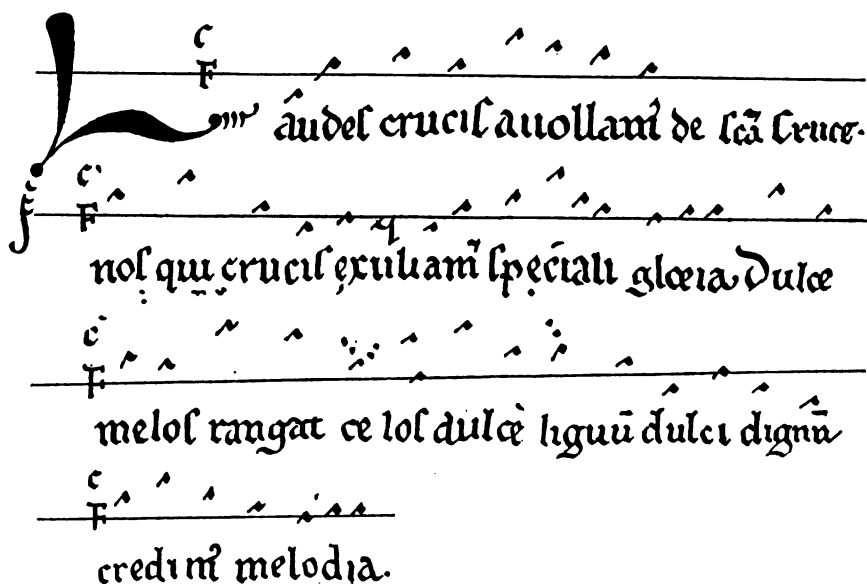 C F
Laudes crucis attollam9 de scā Cruce.
C F
nos qui crucis exultam9 speciali gloria Dulce
C F
melos tangat ce los dulcē lignū dulci dignū
C F
credim9 melodia.